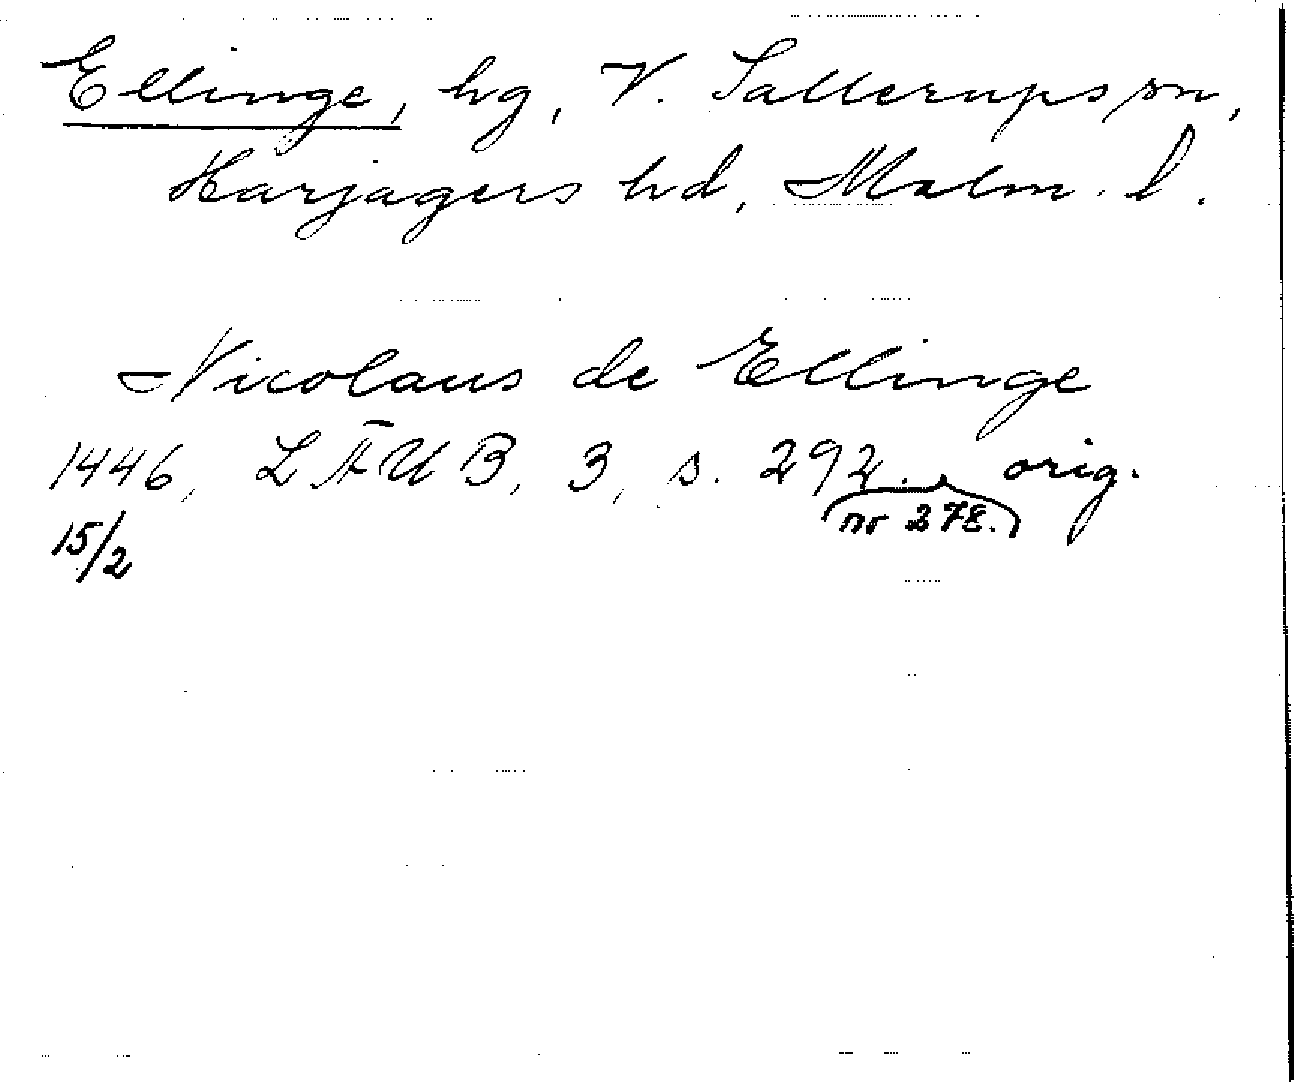 Ellinge, hg, V. Sallerups sn,
Harjagers hd, Malm. l.
Nicolaus de Ellinge
1446, LÄUB, 3, s. 292. orig.
15/2 nr 278.